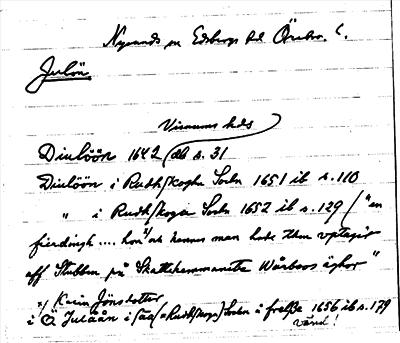 Nysunds sn Edsbergs hd Örebro l.
Julön
Visnums hds
Diulöön 1642 db s. 31
Diulöön i Rudhskogha Sochn 1651 ib s. 110
" i Rudhskoga Sochn 1652 ib s. 129 ("en
fierdingh .... hon x) och hennes man hade then uptagit
aff Stubben på Skattehemmanetz Wårboos äghor"
x) Karin Jönsdotter
i Julåån i (åå = Rudhskoga) Sochn å frelsse 1656 ib s. 179
vänd!